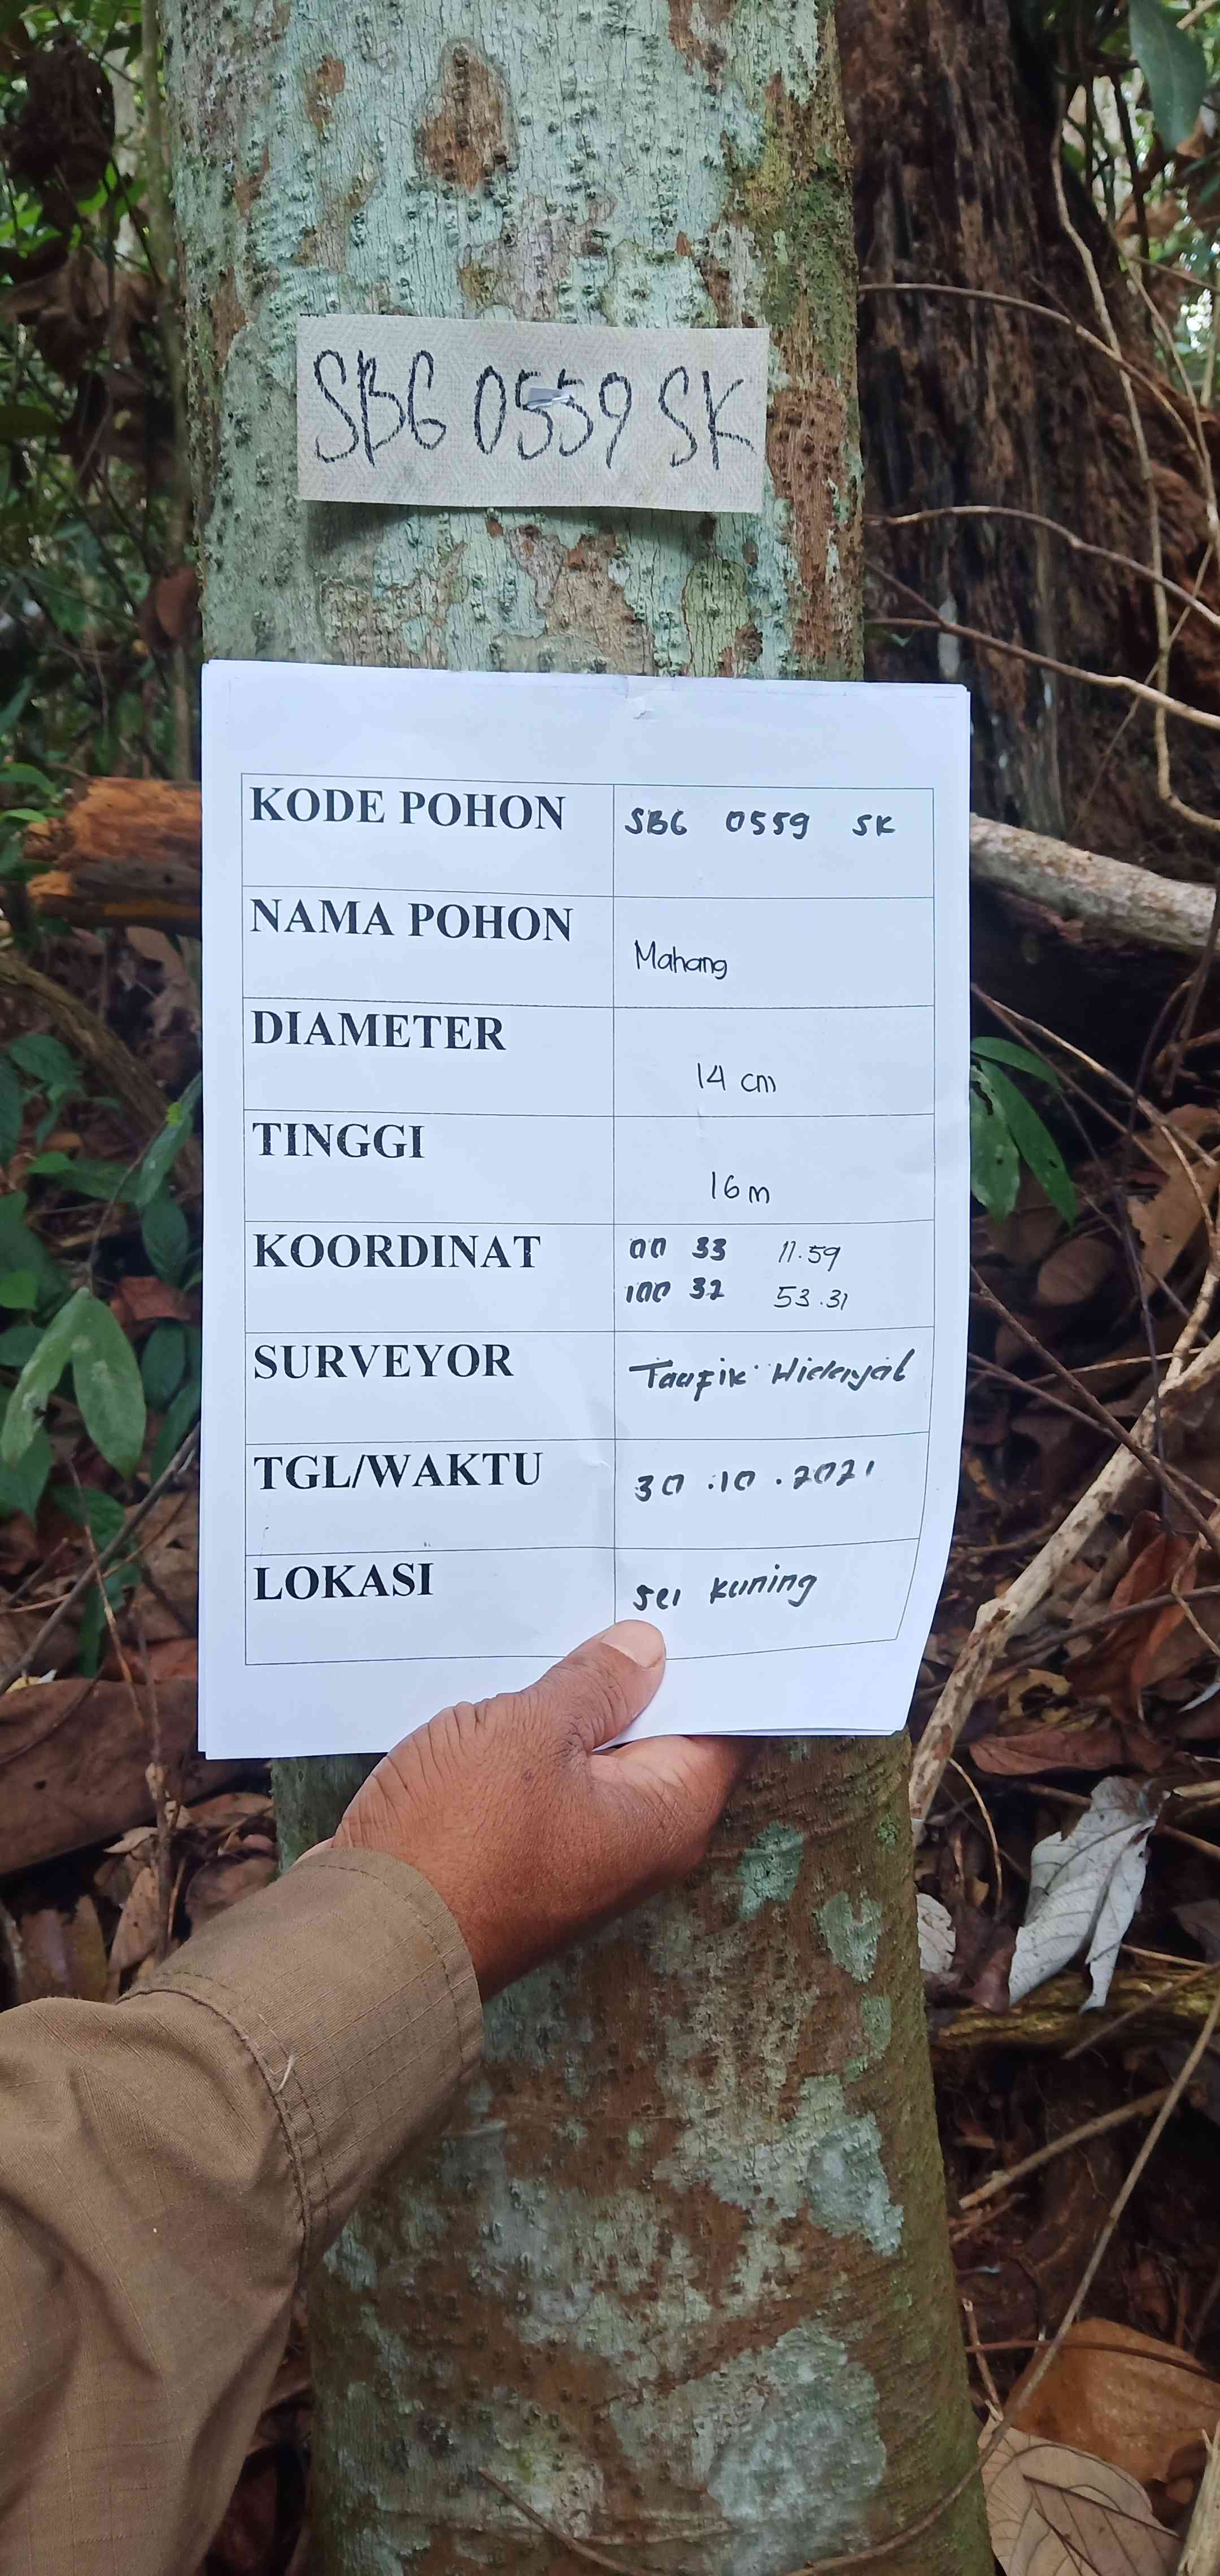 SBG 0559 SK
KODE POHON SBG 0559 SK
NAMA POHON Mahang
DIAMETER 14 cm
TINGGI 16 m
KOORDINAT 00 33 11.59
100 32 53.31
SURVEYOR Taufik Hidayat
TGL/WAKTU 30.10.2021
LOKASI sei kuning